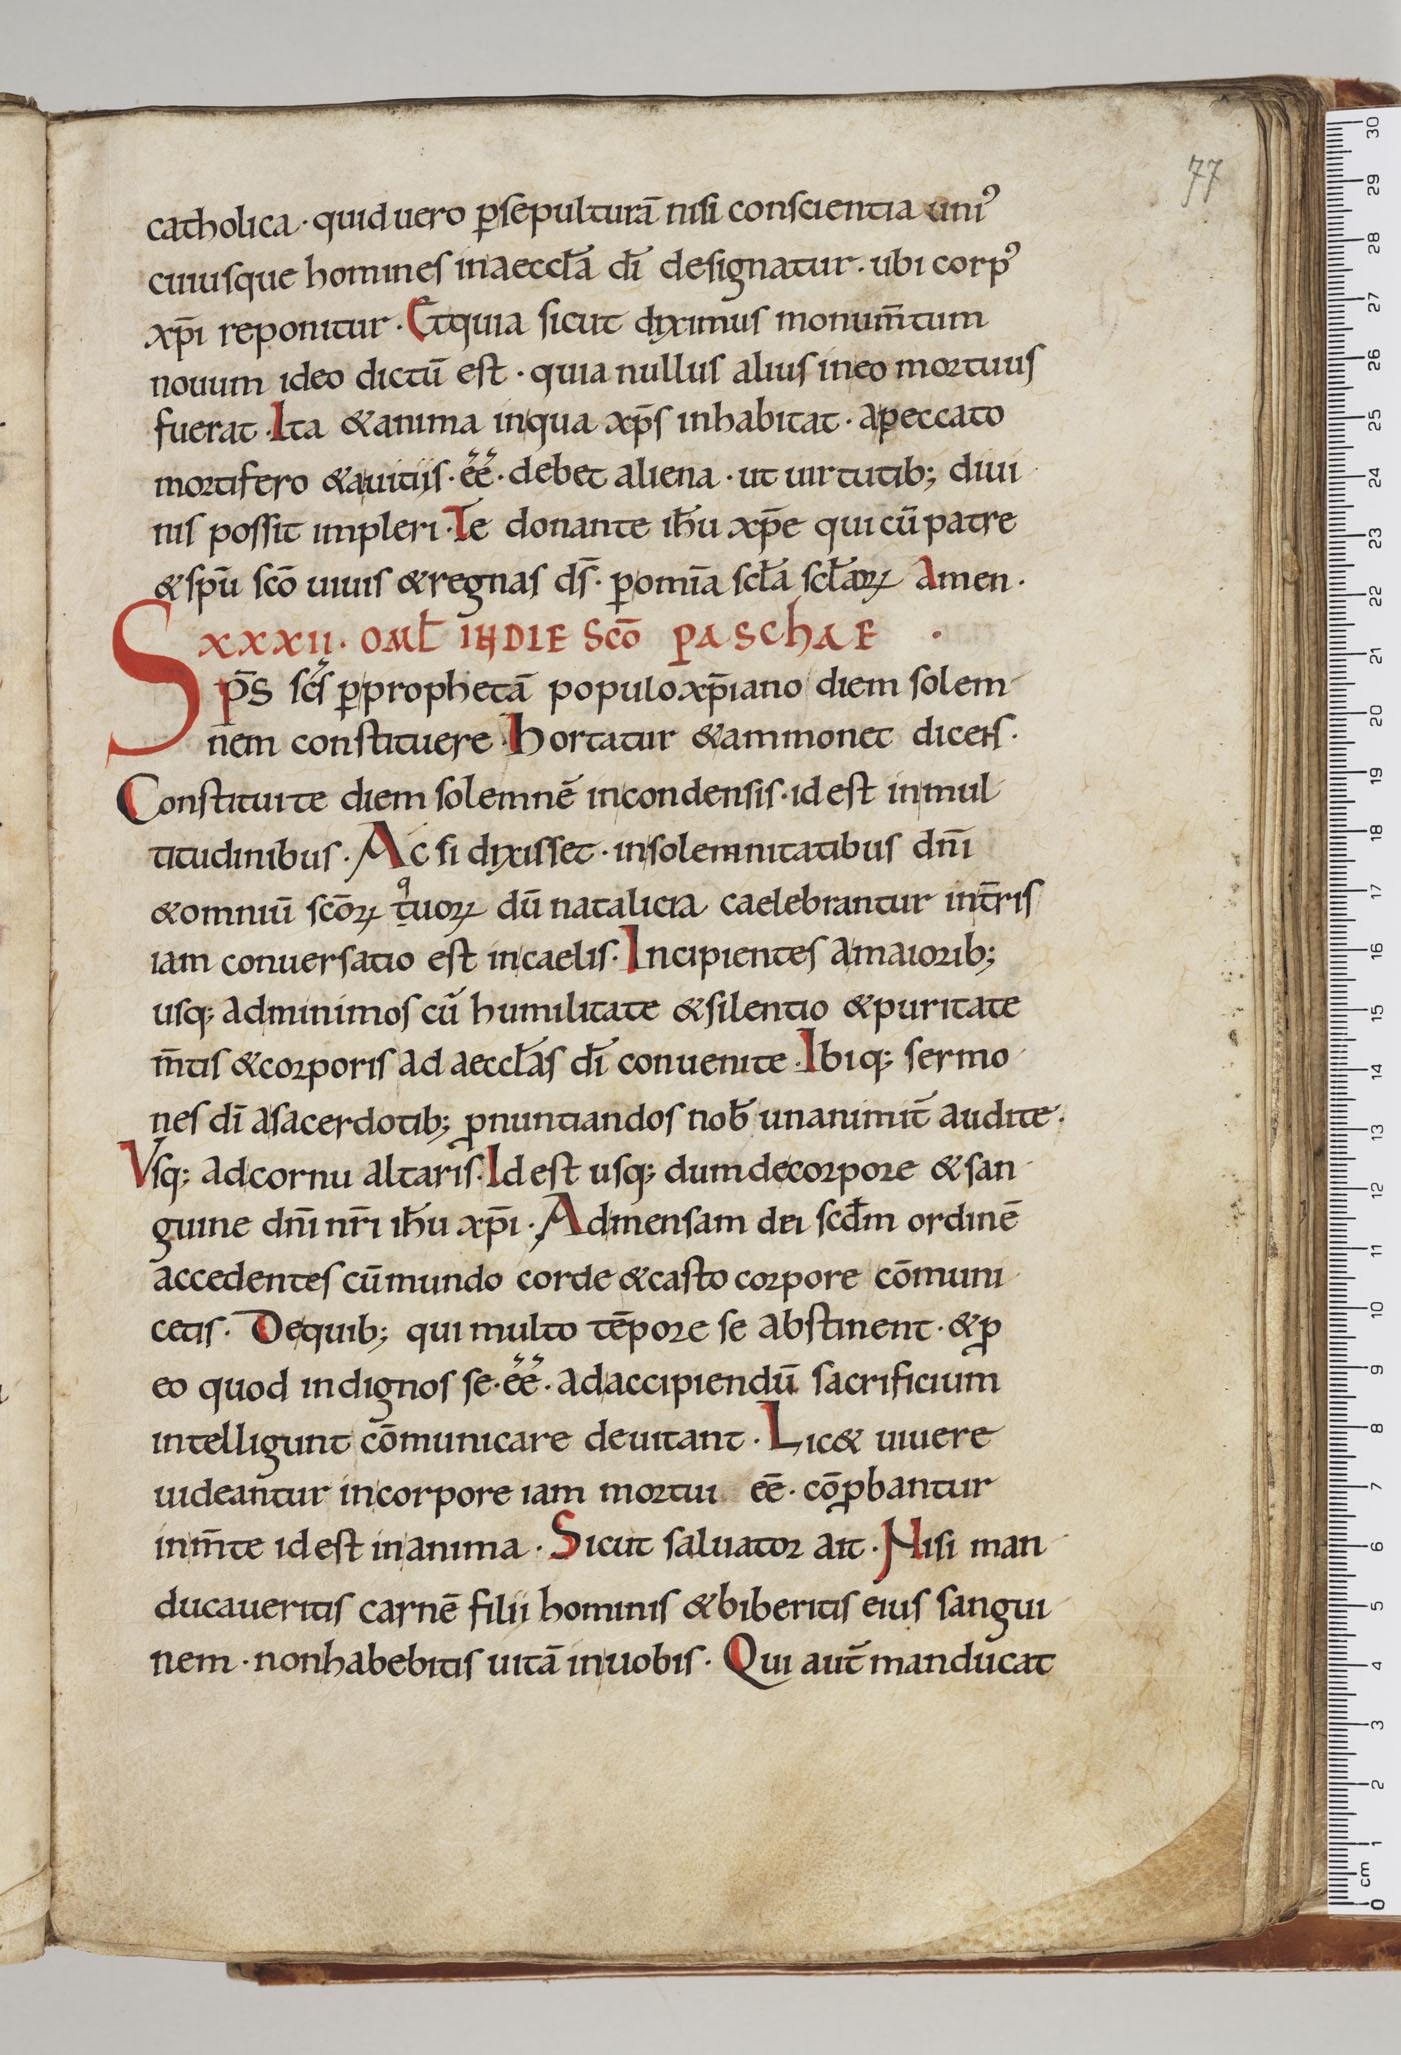 77
catholica · quid uero ꝑsepulturā nisi conscientia uniꝰ
cuiusque homines inaeccƚa dī designatur · ubi corpꝰ
xp̄i reponitur · Et quia sicut dyximus monum̄tum
nouum ideo dictū est · quia nullus alius ineo mortuus
fuerat · Ita &anima inqua xp̄s inhabitat · apeccato
mortifero &auitiis · ee · debet aliena · ut uirtutib; diui
nis possit impleri · Te donante ih̄u xp̄e qui cū patre
&spū scō uiuis &regnas ds̄ · ꝑomīa scƚa scƚaꝝ Amen ·
XXXII · OMƚ IN DIE Scō PASChAE ·
Sp̄s sc̄s ꝑprophetā populo xp̄iano diem solem
nem constituere · hortatur &ammonet dicens ·
Constituite diem solemnē incondensis · id est inmul
titudinibus · Ac si dyxisset · insolemnitatibus dn̄i
&omniū scōꝝ tuoꝝ dū natalicia caelebrantur int̄ris
iam conuersatio est incaelis · Incipientes amaiorib;
usq; adminimos cū humilitate &silentio &puritate
m̄tis &corporis ad aeccƚas dī conuenite · Ibiq; sermo
nes dī asacerdotib; ꝓnuntiandos nob̄ unanimit̄ audite ·
Vsq; adcornu altaris · Id est usq; dum decorpore &san
guine dn̄i nr̄i ih̄u xp̄i · Admensam dei scd̄m ordinē
accedentes cū mundo corde &casto corpore cōmuni
cetis · De quib; qui multo tēpore se abstinent · &ꝓ
eo quod indignos se · ee · adaccipiendū sacrificium
intelligunt cōmunicare deuitant · Lic& uiuere
uideantur incorpore iam mortui eē · cōꝓbantur
inm̄te id est inanima · Sicut saluator ait · Nisi man
ducaueritis carnē filii hominis &biberitis eius sangui
nem · nonhabebitis uitā inuobis · Qui aut̄ manducat
30
29
28
27
26
25
24
23
22
21
20
19
18
17
16
15
14
13
12
11
10
9
8
7
6
5
4
3
2
1
cm
0